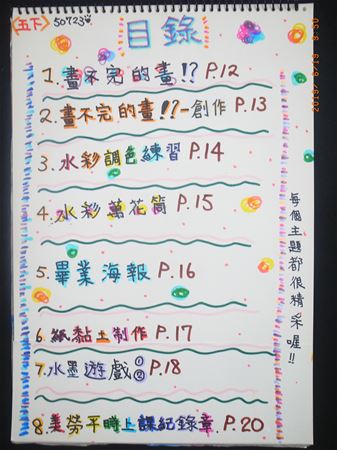 〈五下〉 50723
目錄
1. 畫不完的畫!? P.12
2. 畫不完的畫!?-創作 P.13
3. 水彩調色練習 P.14
4. 水彩萬花筒 P.15
5. 畢業海報 P.16
6. 紙黏土制作 P.17
7. 水墨遊戲①② P.18
8. 美勞平時上課紀錄章. P.20
每個主題都很精采喔!!
2019/6/19 9:30